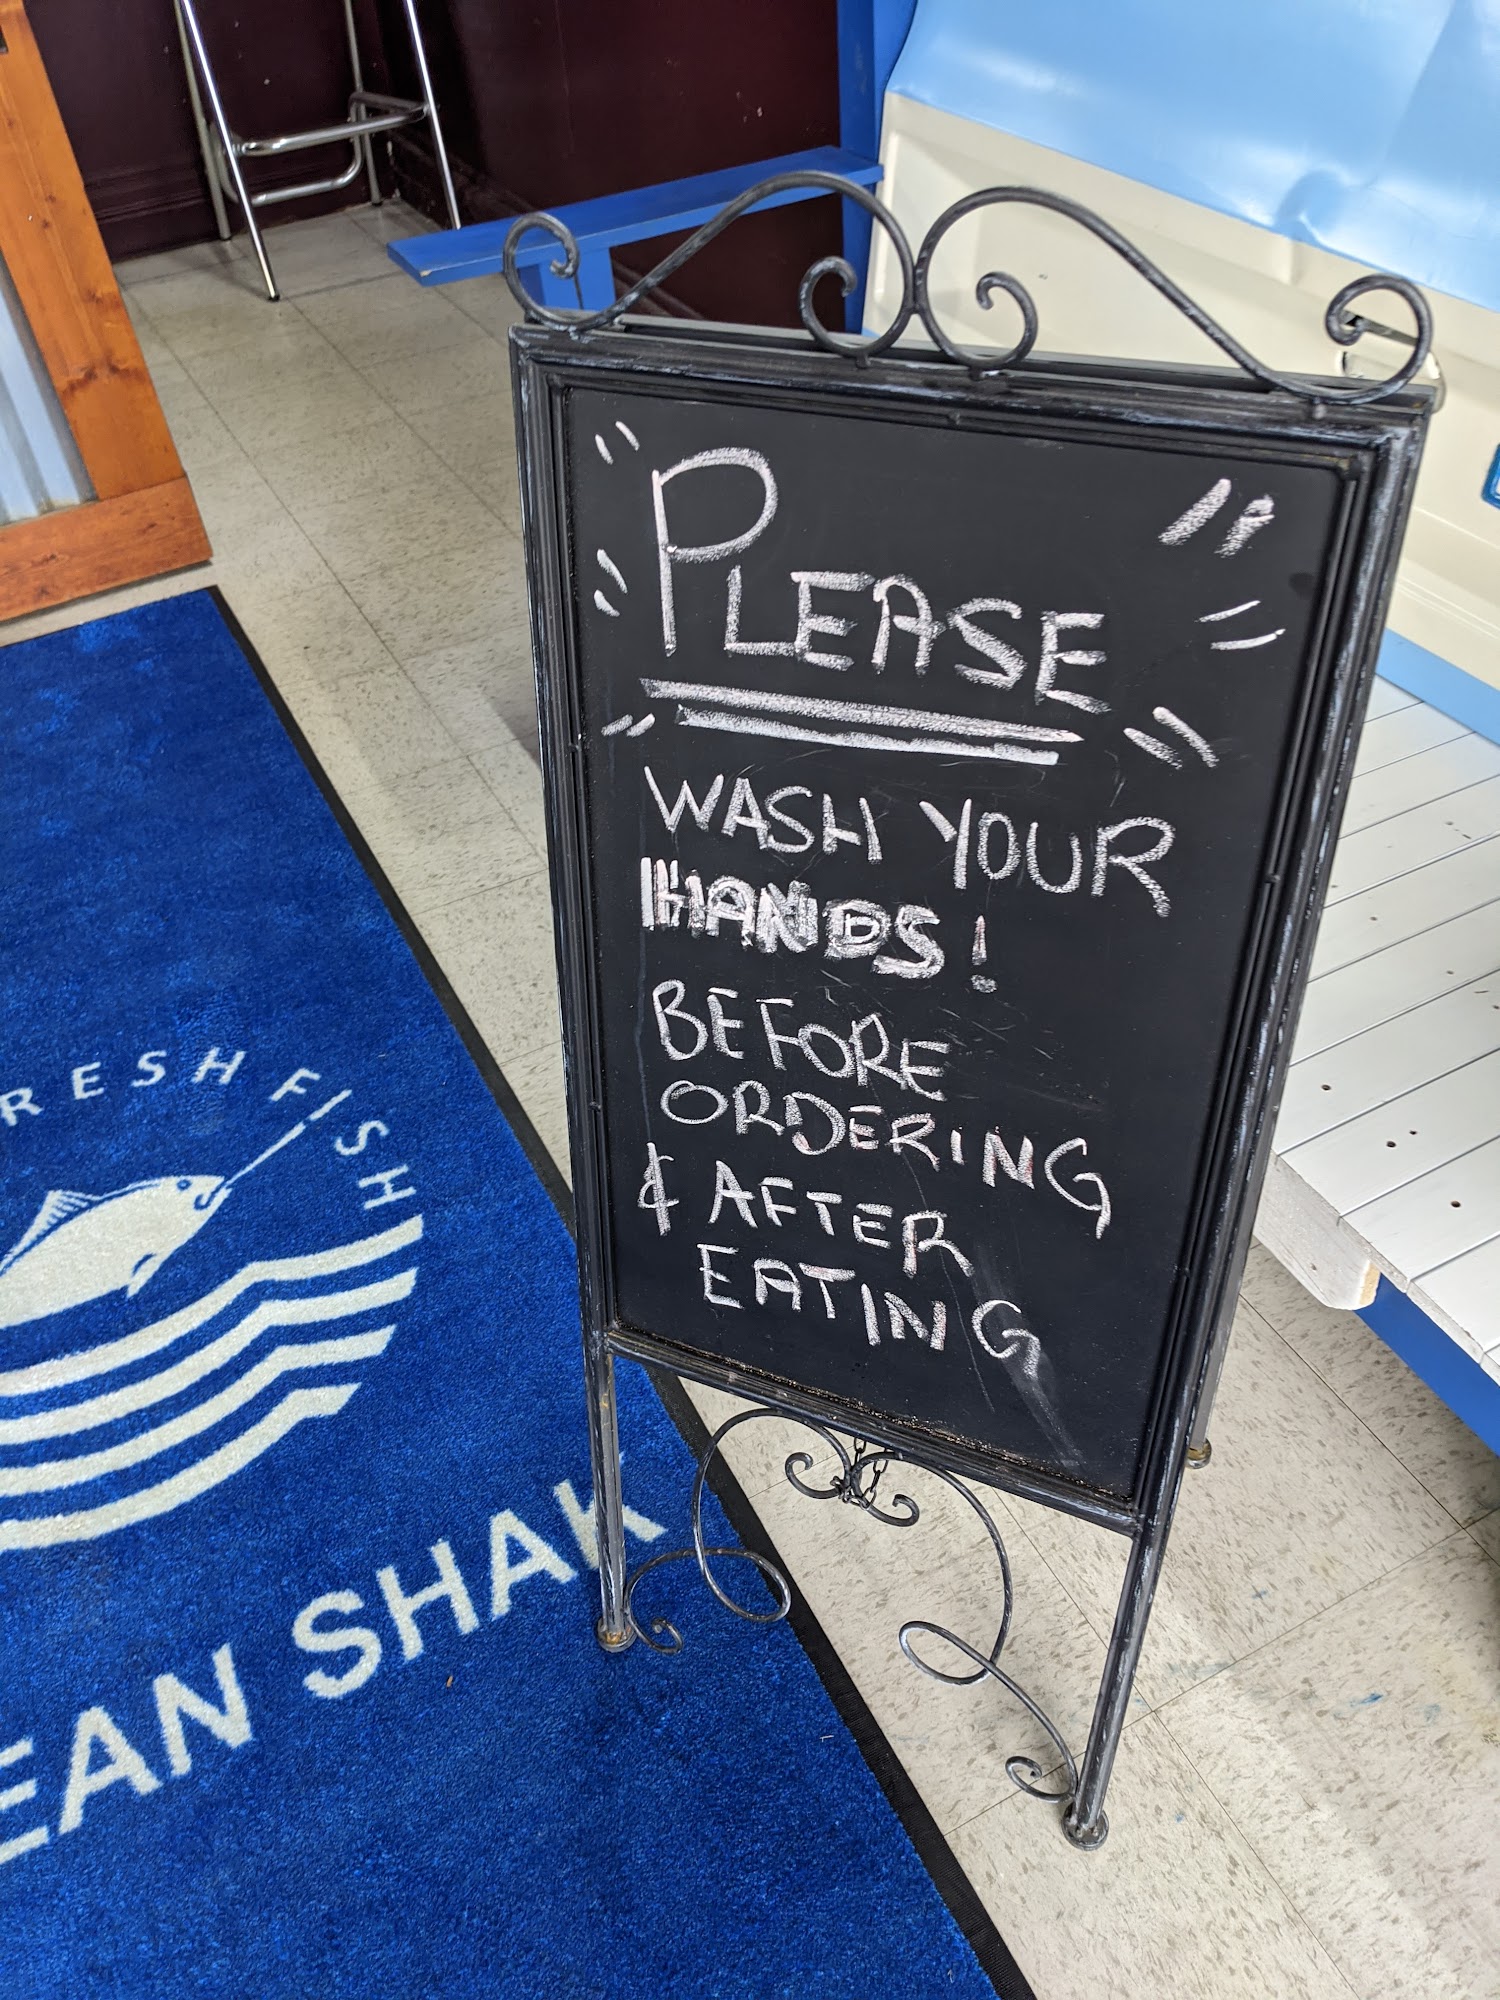 PLEASE
WASH YOUR
HANDS!
BEFORE
ORDERING
& AFTER
EATING
RESH FISH
EAN SHAK